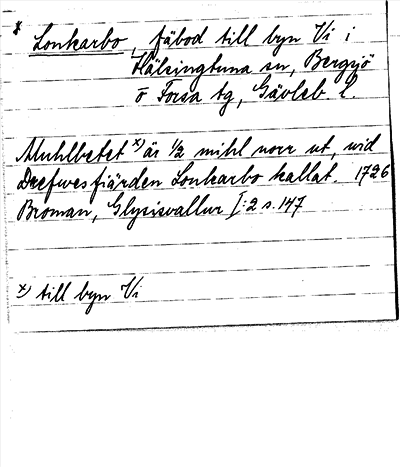 x Lonkarbo, fäbod till byn Vi i
Hälsingtuna sn, Bergsjö
o Forsa tg, Gävleb. l.
Muhlbetet x) är 1/2 mihl norr ut, vid
Deefwesfiärden Lonkarbo kallat. 1726
Broman, Glysisvallur I:2 s. 147
x) till byn Vi